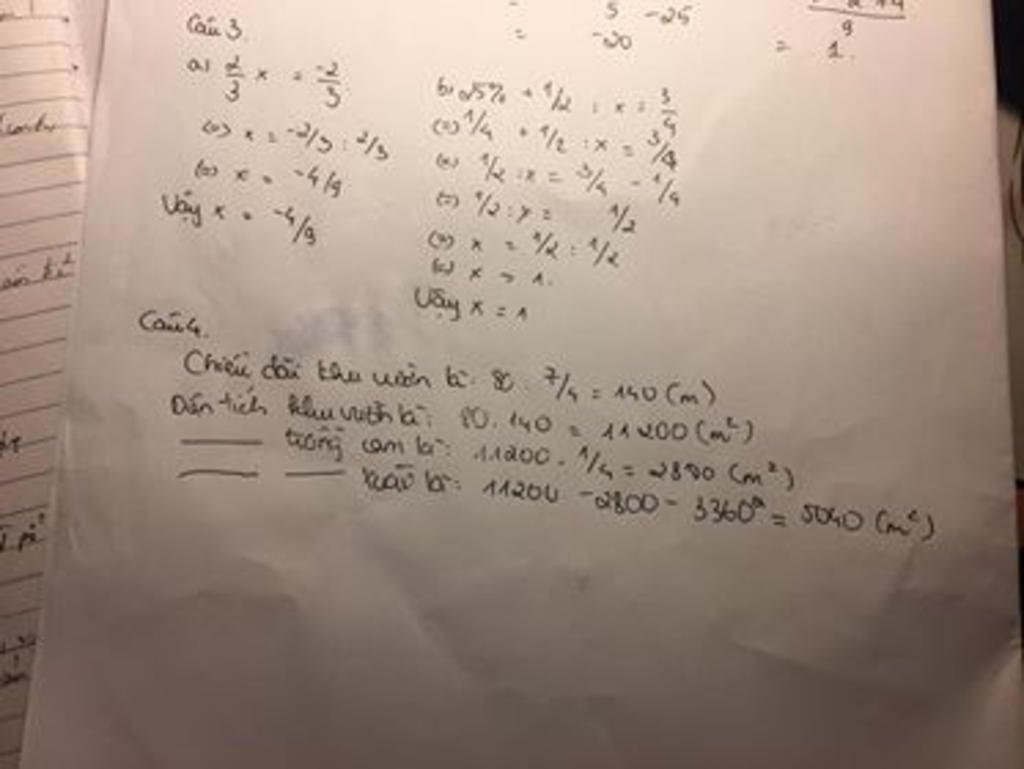 5 -25
= -20
9
= 1.
Câu 3.
a) 2/3 x = -2/3
(=) x = -2/3 : 2/3
(=) x = -4/9
Vậy x = -4/9
b) 25% + 1/2 : x = 3/4
(=) 1/4 + 1/2 : x = 3/4
(=) 1/2 : x = 3/4 - 1/4
(=) 1/2 : x = 1/2
(=) x = 1/2 : 1/2
(=) x = 1.
Vậy x = 1
Câu 4.
Chiều dài khu vườn là: 80 . 7/4 = 140 (m)
Diện tích khu vườn là: 80 . 140 = 11200 (m²)
trồng cam là: 11200 . 1/4 = 2800 (m²)
là: 11200 - 2800 - 3360 = 5040 (m²)